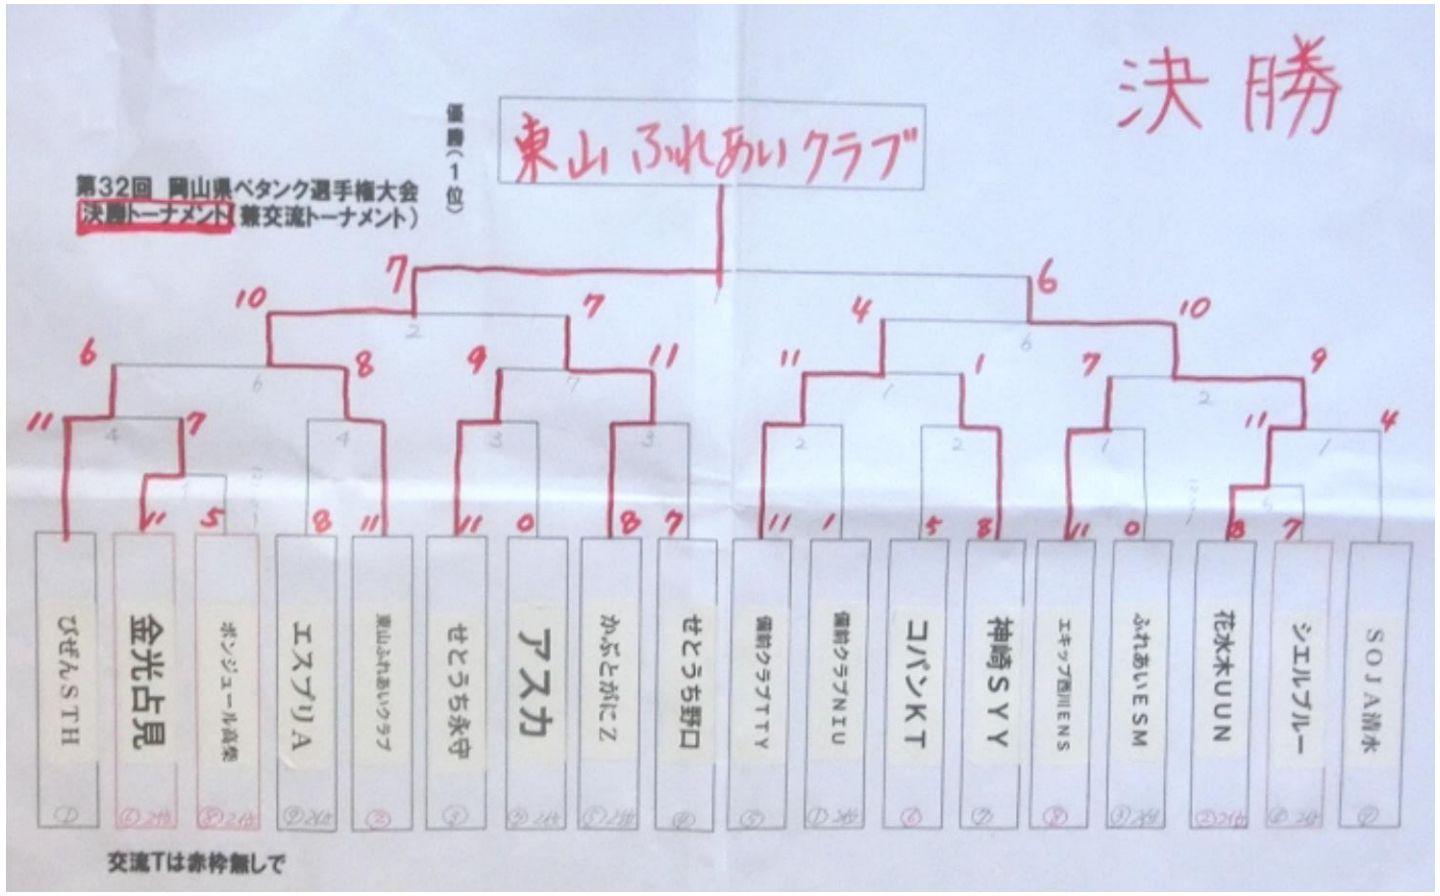 決勝
優勝(1位)
東山ふれあいクラブ
第32回 岡山県ペタンク選手権大会
決勝トーナメント(兼交流トーナメント)
7
6
10
7
4
10
6
8
9
11
11
1
7
9
11
7
11
4
11
5
8
11
11
0
8
7
11
1
5
8
11
0
8
7
びぜんSTH
金光占見
ボンジュール高梁
エスプリA
東山ふれあいクラブ
せとうち永守
アスカ
かぶとがにZ
せとうち野口
備前クラブTTY
備前クラブNIU
コパンKT
神崎SYY
エキップ西川ENS
ふれあいESM
花水木UUN
シエルブルー
SOJA清水
交流Tは赤枠無しで